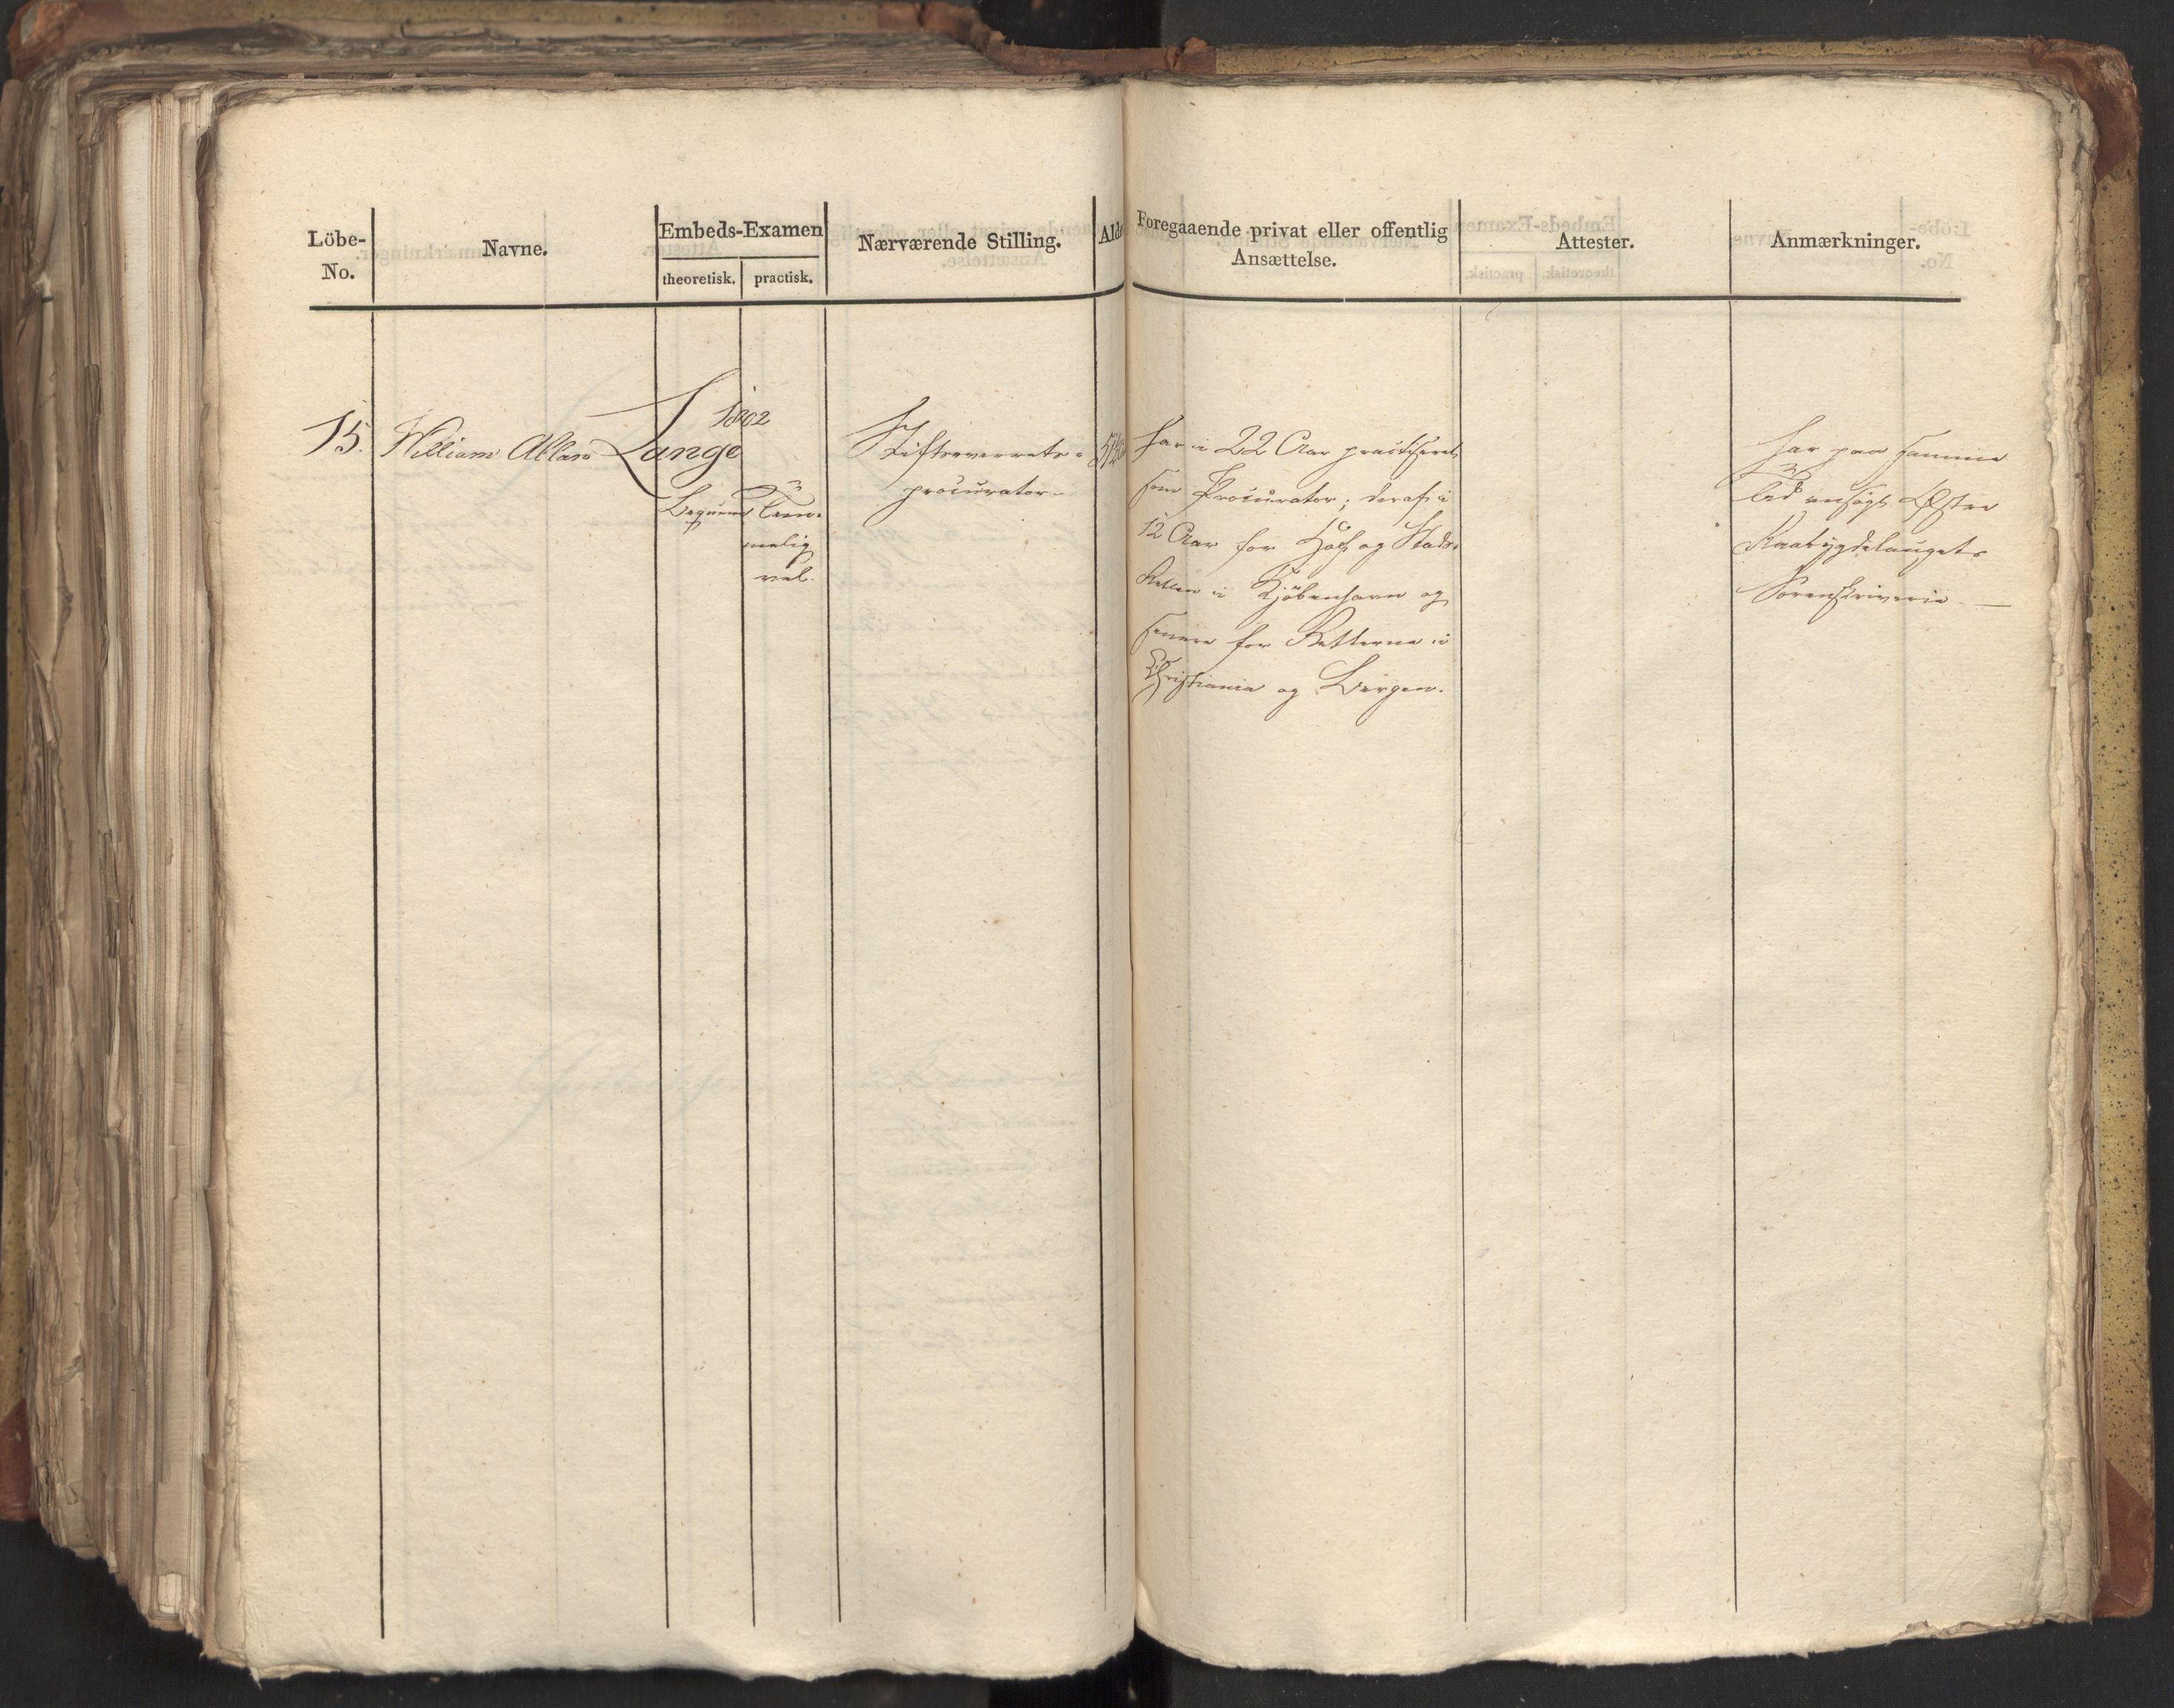 Löbe-
No.
Navne.
Embeds-Examen
theoretisk.
practisk.
Nærværende Stilling.
Alder
Foregaaende privat eller offentlig
Ansættelse.
Attester.
Anmærkninger.
15.
William Allan Lange
1802
Beqvem
Tem-
melig
vel.
Stiftsoverrets-
procurator
har i 22 Aar practiseret
som Procurator; deraf i
12 Aar for Hof og Stads-
Retten i Kjöbenhavn og
senere for Retterne i
Christiania og Bergen.
har paa samme
Tid ansøgt Østre
Raabygdelaugets
Sorenskriverie. —